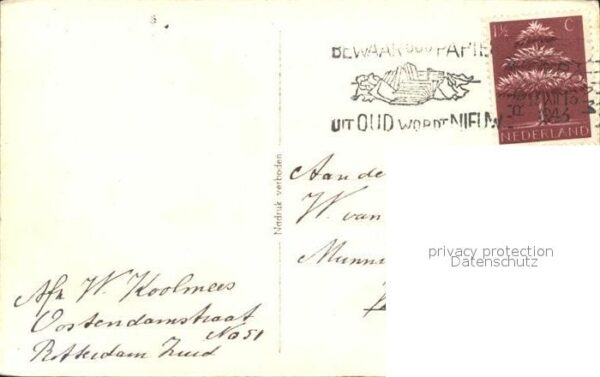 BEWAAR OUD PAPIE
UIT OUD WORDT NIEUW
1½ C
NEDERLAND
1943
Nadruk verboden
Aan de
W. van
Munni
privacy protection
Datenschutz
Afz. W. Koolmees
Oostendamstraat
No 51
Rotterdam Zuid